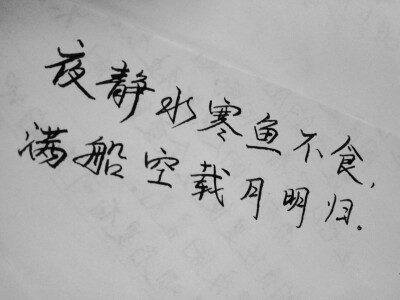 夜静水寒鱼不食,
满船空载月明归。